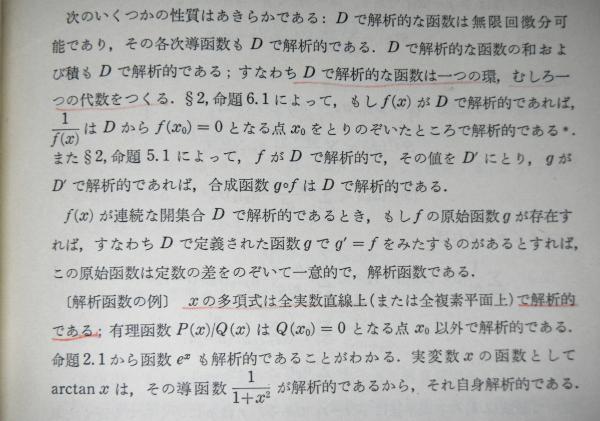 次のいくつかの性質はあきらかである：D で解析的な函数は無限回微分可
能であり，その各次導函数も D で解析的である．D で解析的な函数の和およ
び積も D で解析的である；すなわち D で解析的な函数は一つの環，むしろ一
つの代数をつくる．§2, 命題 6.1 によって，もし f(x) が D で解析的であれば，
1/f(x) は D から f(x₀)=0 となる点 x₀ をとりのぞいたところで解析的である*．
また §2, 命題 5.1 によって，f が D で解析的で，その値を D′ にとり，g が
D′ で解析的であれば，合成函数 g∘f は D で解析的である．
f(x) が連続な開集合 D で解析的であるとき，もし f の原始函数 g が存在す
れば，すなわち D で定義された函数 g で g′=f をみたすものがあるとすれば，
この原始函数は定数の差をのぞいて一意的で，解析函数である．
〔解析函数の例〕 x の多項式は全実数直線上(または全複素平面上)で解析的
である；有理函数 P(x)/Q(x) は Q(x₀)=0 となる点 x₀ 以外で解析的である．
命題 2.1 から函数 eˣ も解析的であることがわかる．実変数 x の函数として
arctan x は，その導函数 1/(1+x²) が解析的であるから，それ自身解析的である．